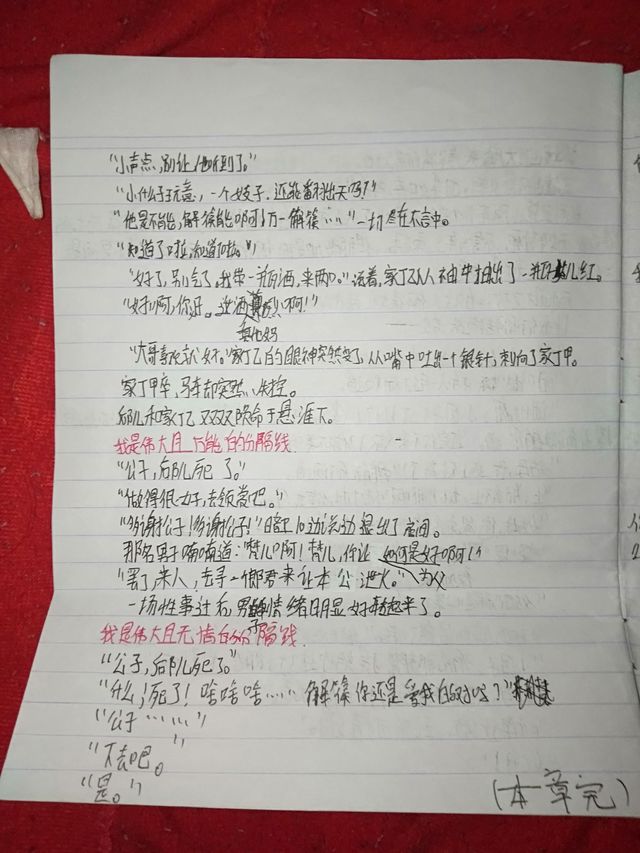 "小声点,别让他听到了。"
"小什么子玩意,一个妓子.还能翻出天吗?"
"他是不能,解篠能啊!万一解篠……"一切尽在不言中。
"知道了啦,知道啦。"
"好了,别念了,我带一瓶酒,来两口。"说着,家丁乙从袖中抽出了一瓶女儿红。
"好啊,你小子。这酒 啊!"
其他妈
"大哥喜欢就好。"家丁乙的眼神突然变了,从嘴中吐出一个银针,刺向了家丁甲。
家丁甲卒,马车却突然失控。
邱儿和家丁乙双双殒命于悬涯下。
我是伟大且万能的分隔线
"公子,邱儿死了。"
"做得很好,去领赏吧。"
"多谢公子!多谢公子!"暗卫的边说边退出了房间。
那名男子喃喃道:"梵儿啊!梵儿,你让 如何是好啊!"
为父
"罢了,来人,去寻一郎君来让本公泄火。"
一场性事过后,男子情绪明显好转起来了。
我是伟大且无情的分隔线
"公子,邱儿死了。"
"什么!死了!啥啥啥…… 解篠你还是爱我的对吗?"
"公子……"
"下去吧。"
"是。"
(本章完)